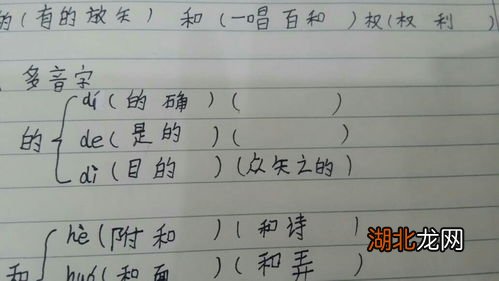 的(有的放矢) 和(一唱百和)权(权利)
多音字
的
dí(的确)( )
de(是的)( )
dì(目的)(众矢之的)
和
hè(附和)(和诗)
huó(和面)(和弄)
湖北龙网